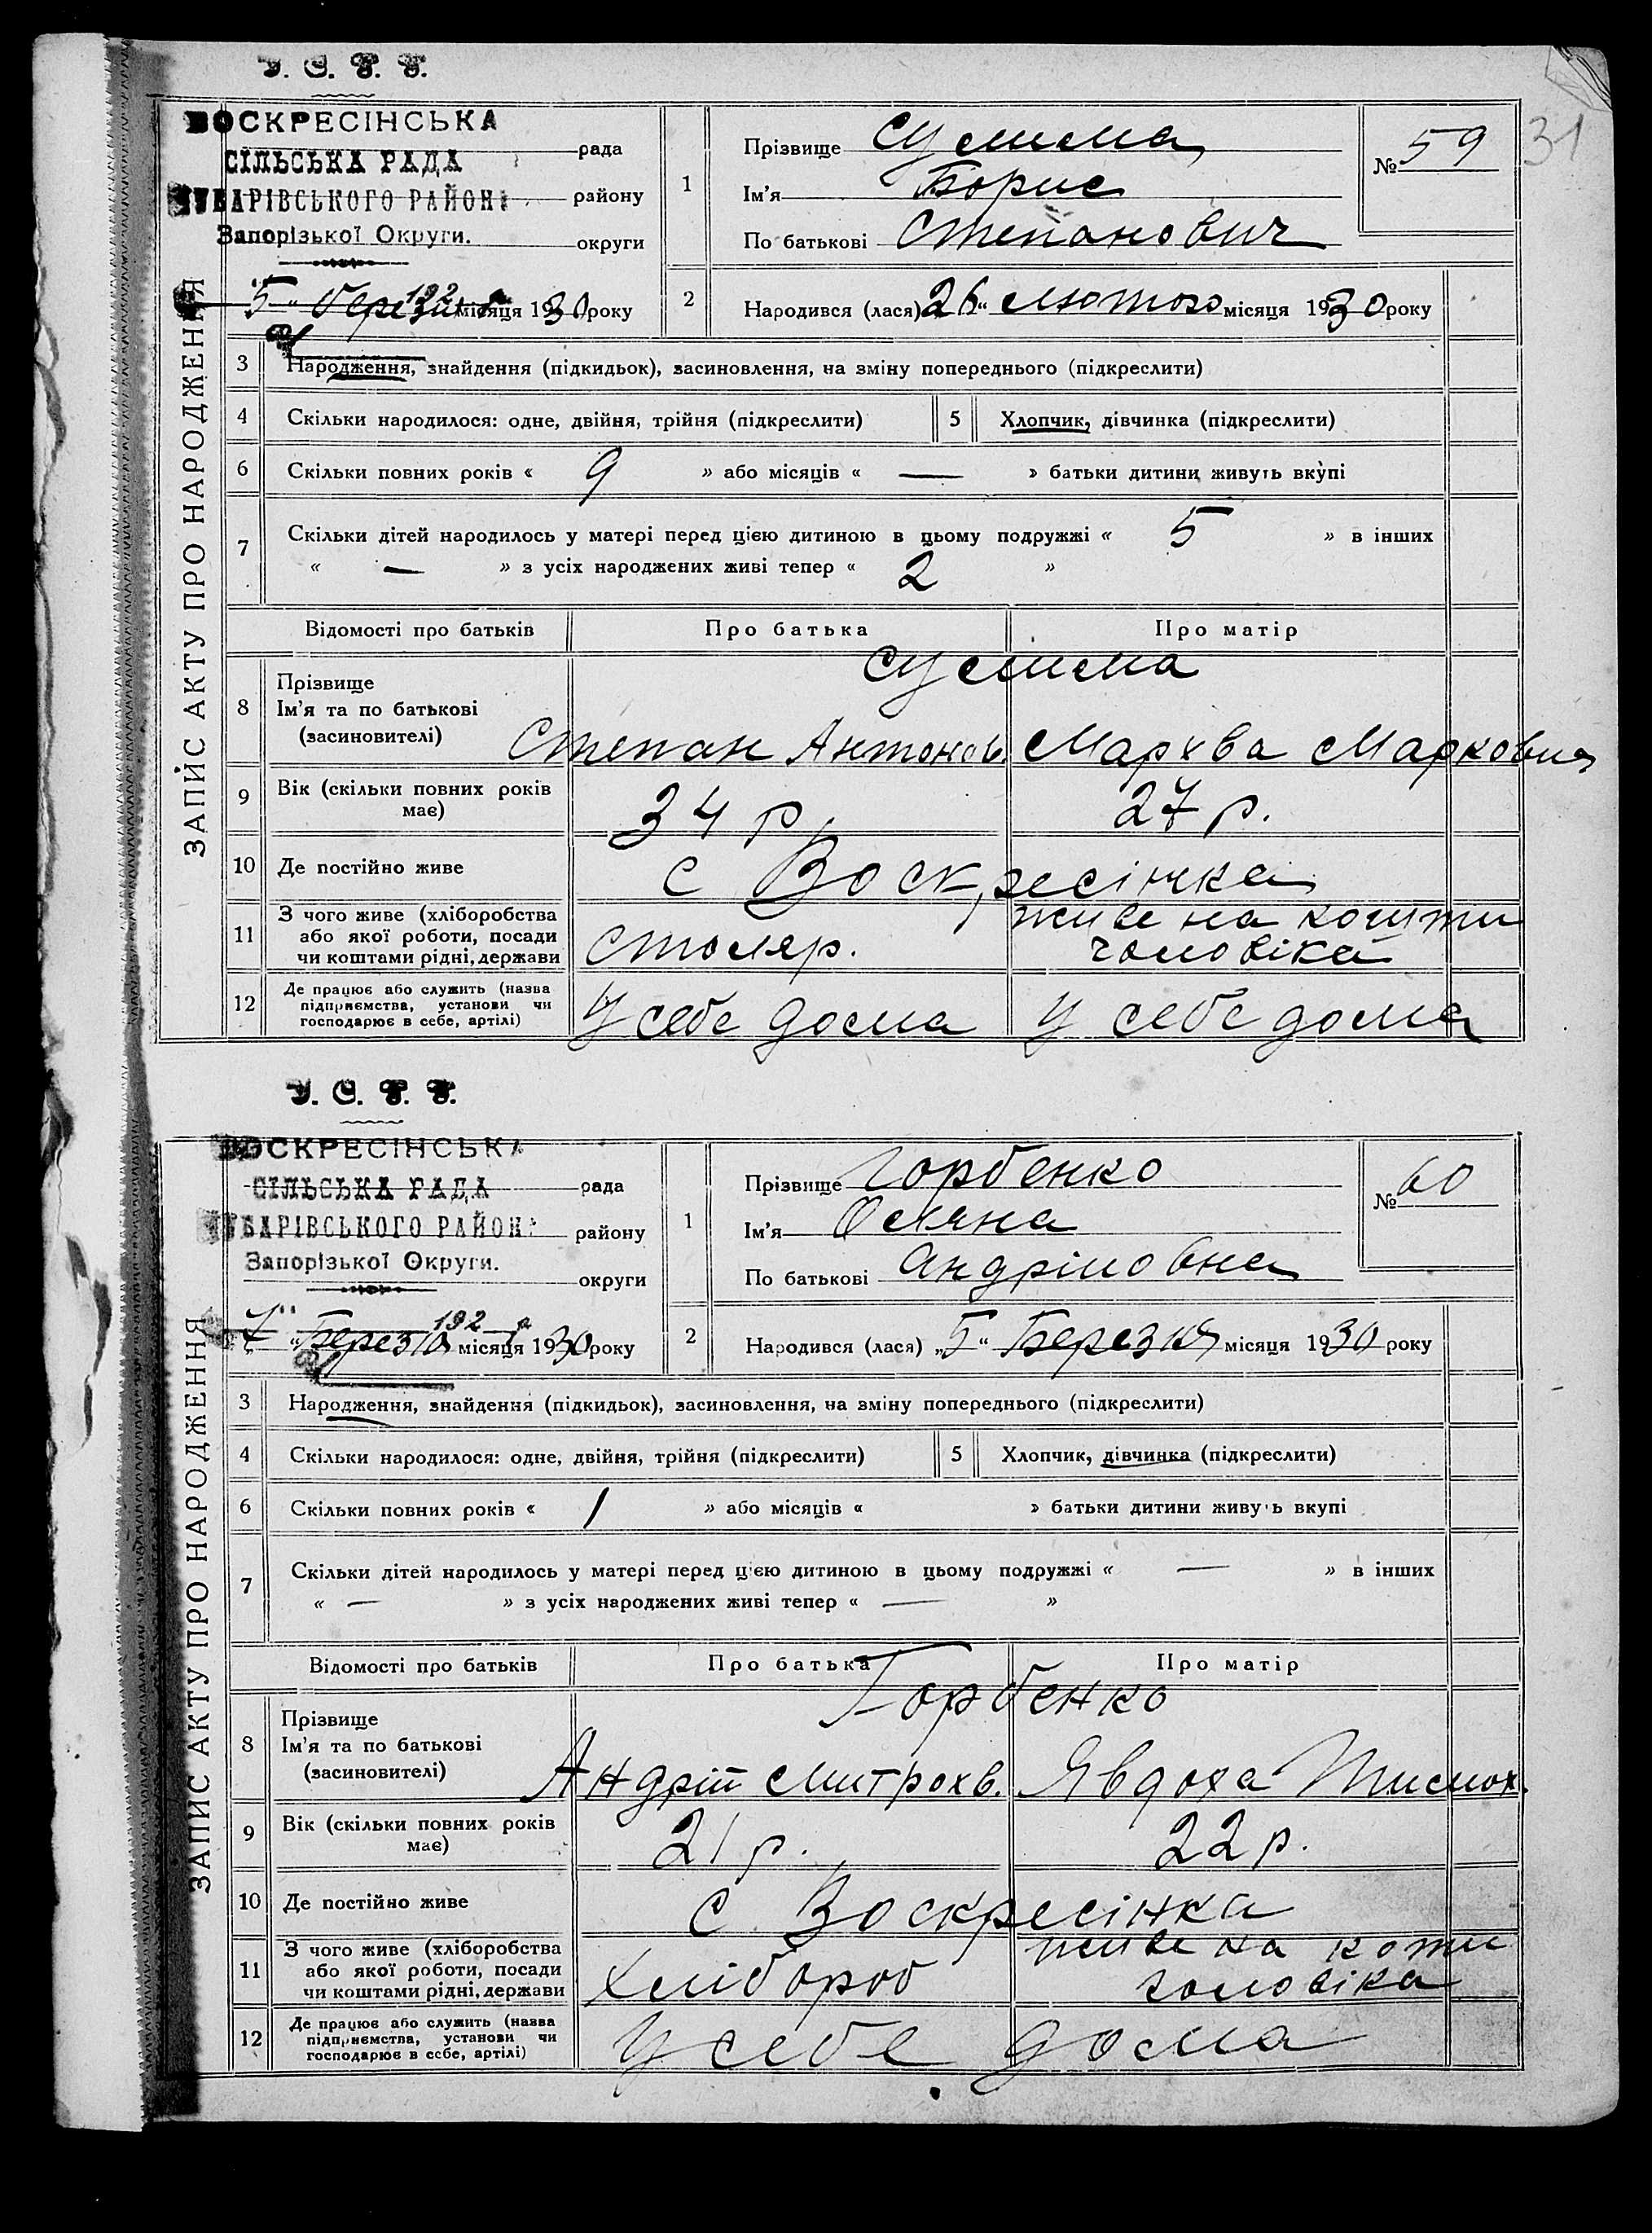 У. С. Р. Р.
31
ВОСКРЕСІНСЬКА
СІЛЬСЬКА РАДА рада
ЧУБАРІВСЬКОГО РАЙОНУ району
Запорізької Округи. округи
„5“ березня місяця 1930 року
192 р
ЗАПИС АКТУ ПРО НАРОДЖЕННЯ
1 Прізвище Сулима
Ім'я Борис
По батькові Степанович
№ 59
2 Народився (лася) „26“ лютого місяця 1930 року
3 Народження, знайдення (підкидьок), засиновлення, на зміну попереднього (підкреслити)
4 Скільки народилося: одне, двійня, трійня (підкреслити) 5 Хлопчик, дівчинка (підкреслити)
6 Скільки повних років « 9 » або місяців « — » батьки дитини живуть вкупі
7 Скільки дітей народилось у матері перед цією дитиною в цьому подружжі « 5 » в інших
« — » з усіх народжених живі тепер « 2 »
Відомості про батьків Про батька Про матір
8 Прізвище Сулима
Ім'я та по батькові
(засиновителі) Степан Антонов. Мархва Марковна
9 Вік (скільки повних років має) 34 р. 27 р.
10 Де постійно живе с Воскресінка
11 З чого живе (хліборобства живе на кошти
або якої роботи, посади
чи коштами рідні, держави Столяр. чоловіка
12 Де працює або служить (назва
підприємства, установи чи
господарює в себе, артілі) У себе дома У себе дома
У. С. Р. Р.
ВОСКРЕСІНСЬКА
СІЛЬСЬКА РАДА рада
ЧУБАРІВСЬКОГО РАЙОНУ району
Запорізької Округи. округи
„7“ Березня місяця 1930 року
192 р
ЗАПИС АКТУ ПРО НАРОДЖЕННЯ
1 Прізвище Горбенко
Ім'я Оляна
По батькові Андріловна
№ 60
2 Народився (лася) „5“ Березня місяця 1930 року
3 Народження, знайдення (підкидьок), засиновлення, на зміну попереднього (підкреслити)
4 Скільки народилося: одне, двійня, трійня (підкреслити) 5 Хлопчик, дівчинка (підкреслити)
6 Скільки повних років « 1 » або місяців « » батьки дитини живуть вкупі
7 Скільки дітей народилось у матері перед цією дитиною в цьому подружжі « — » в інших
« — » з усіх народжених живі тепер « — »
Відомості про батьків Про батька Про матір
8 Прізвище Горбенко
Ім'я та по батькові
(засиновителі) Андрій Митрохв. Явдоха Тимох.
9 Вік (скільки повних років має) 21 р. 22 р.
10 Де постійно живе с. Воскресінка
11 З чого живе (хліборобства живе на кошти
або якої роботи, посади
чи коштами рідні, держави Хлібороб чоловіка
12 Де працює або служить (назва
підприємства, установи чи
господарює в себе, артілі) У себе дома